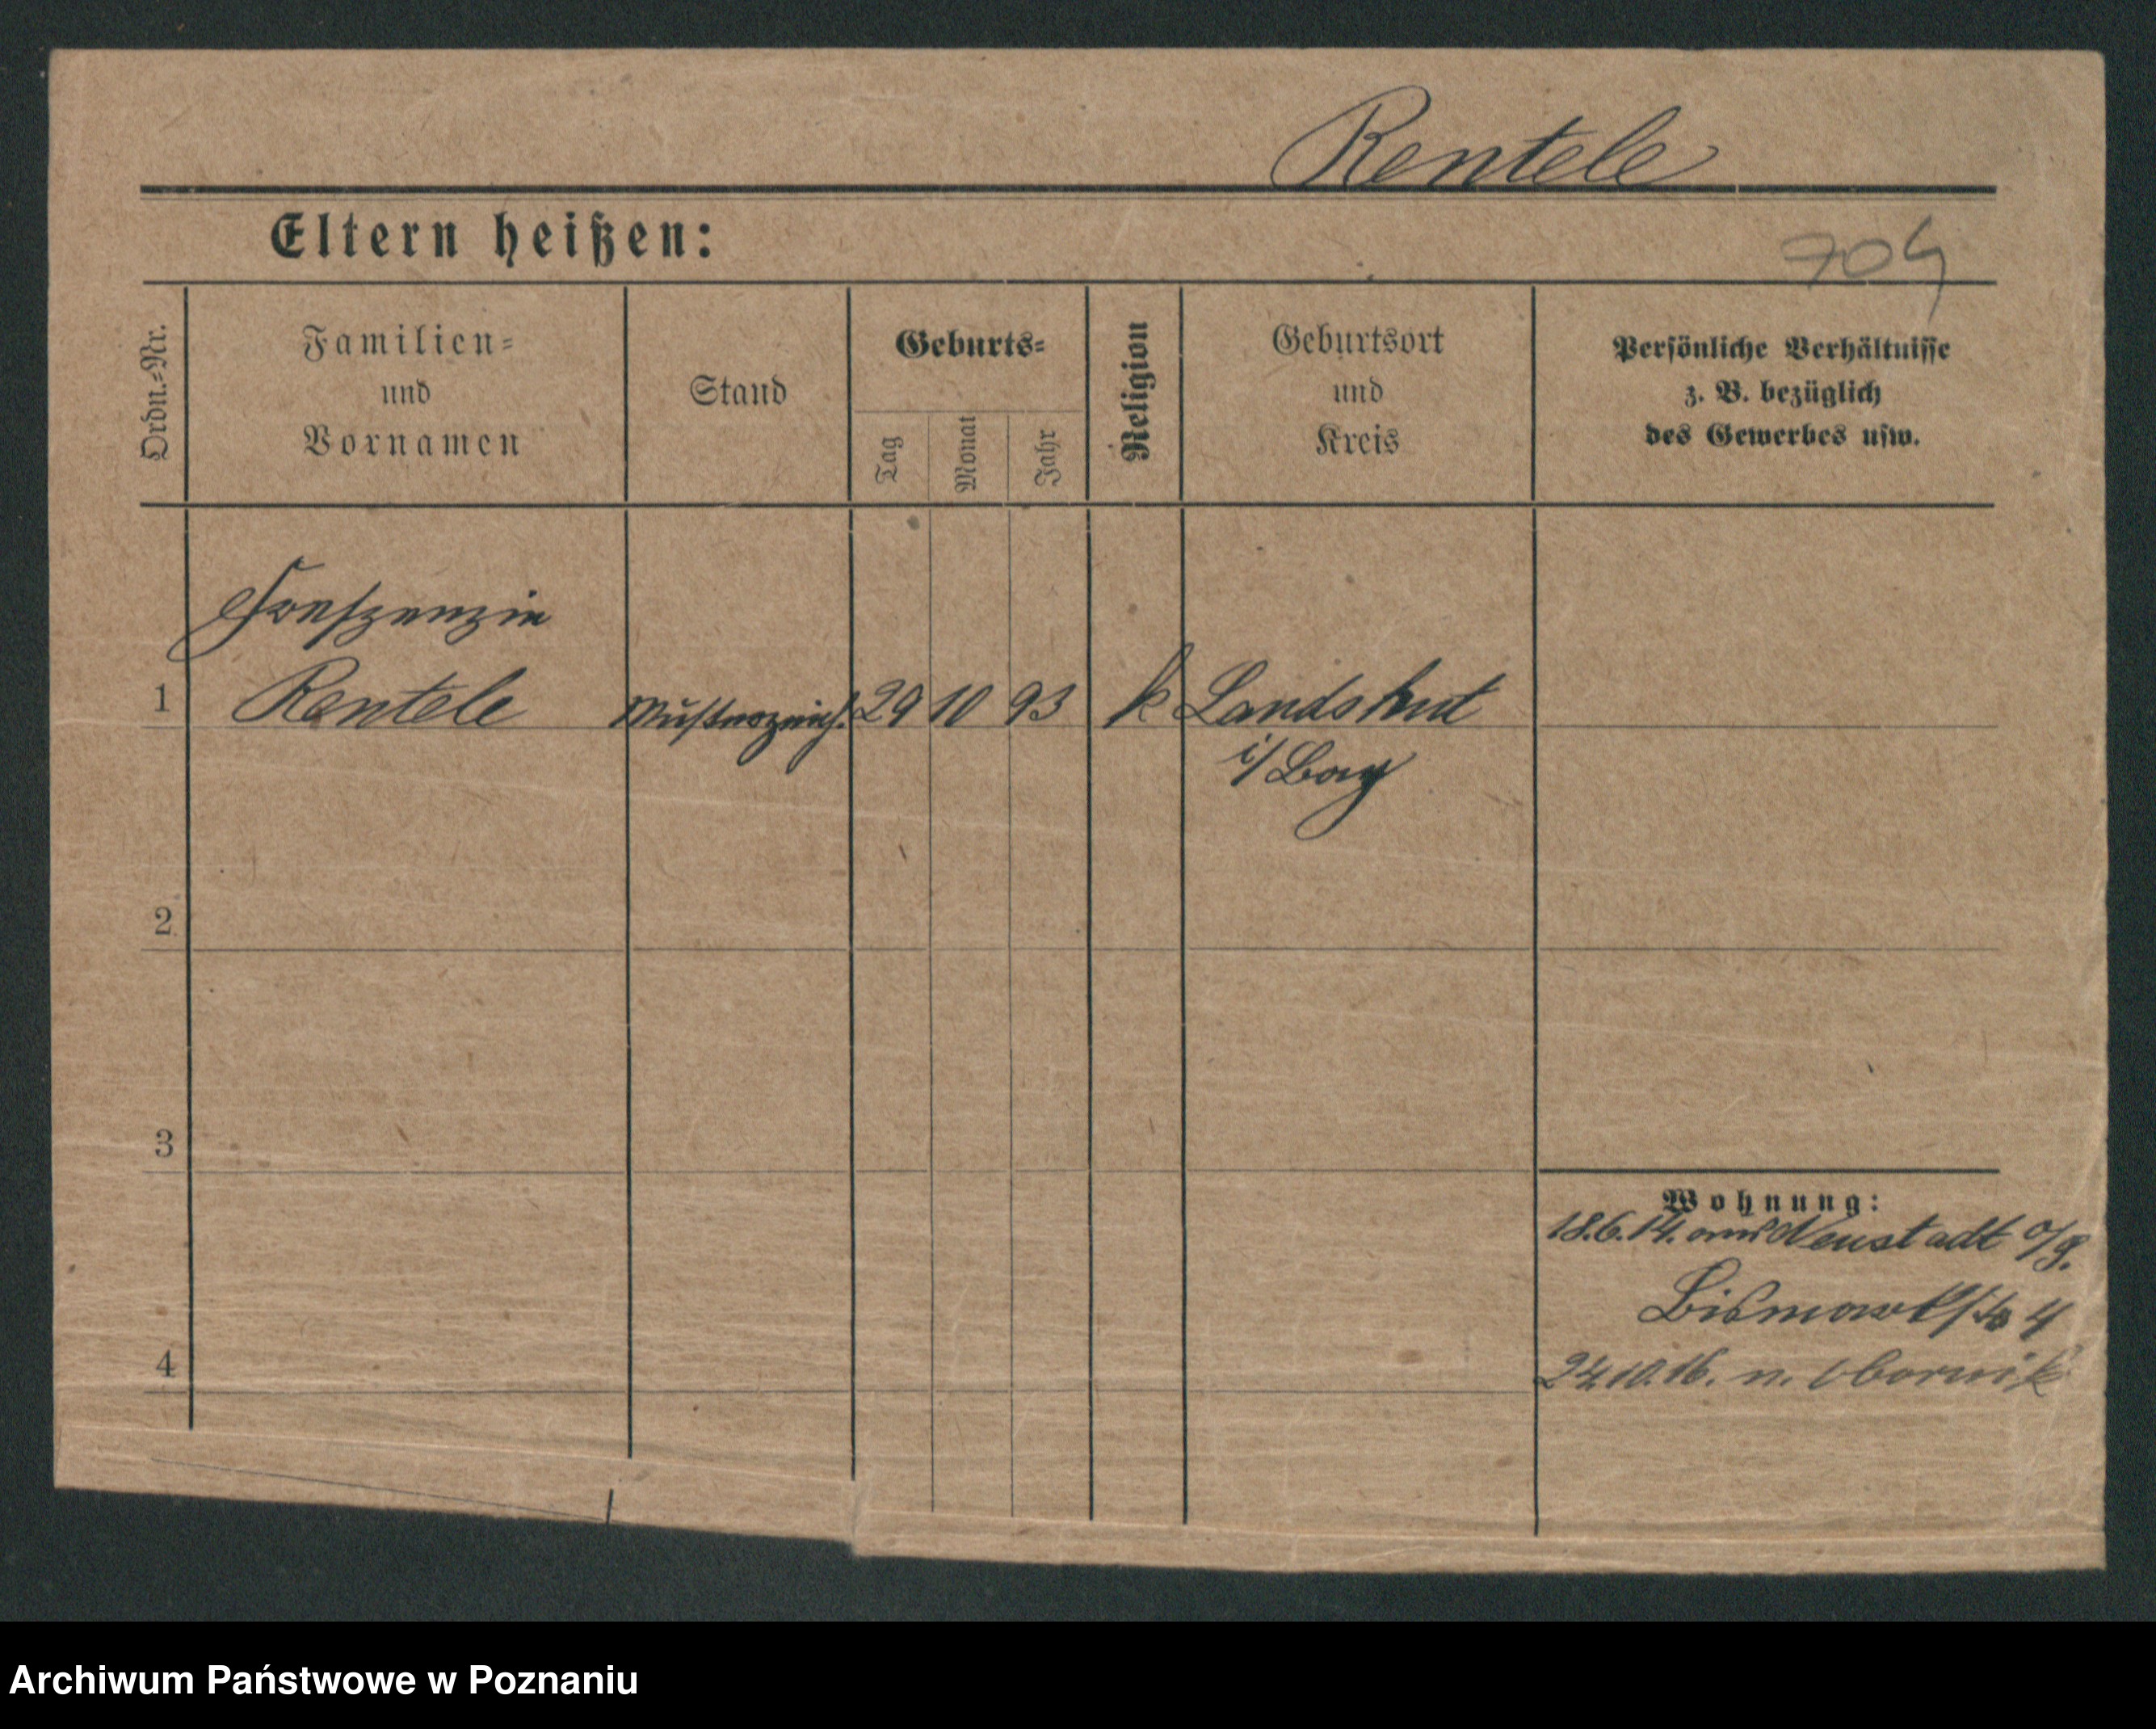 Rentele
Eltern heißen:
704
Ordn.-Nr.
Familien-
und
Vornamen
Stand
Geburts-
Tag
Monat
Jahr
Religion
Geburtsort
und
Kreis
Persönliche Verhältnisse
z. B. bezüglich
des Gewerbes usw.
Kreszenzia
1 Rentele Musterzeich. 29 10 93 k Landshut
i/Bay
2
3
Wohnung:
18.6.14. aus Neustadt O/S.
Bismarckstr 4
4
24.10.16. n. Obornik
Archiwum Państwowe w Poznaniu